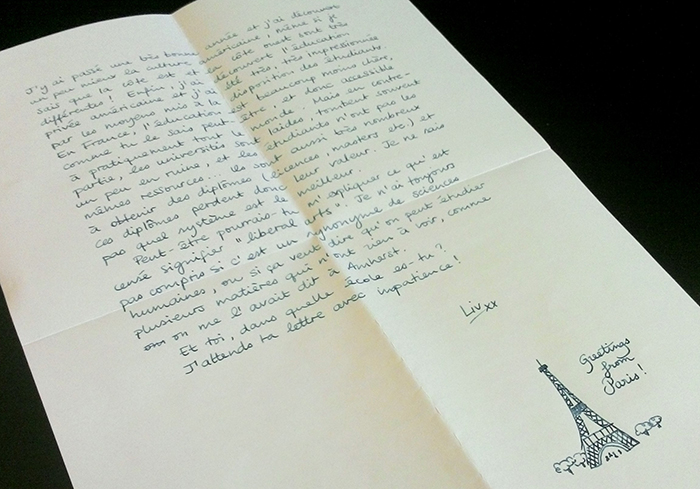 J'y ai passé une très bonne année et j'ai découvert
un peu mieux la culture américaine, même si je
sais que la côte est et la côte ouest sont très
différentes ! Enfin, j'ai découvert l'éducation
privée américaine et j'ai été très, très impressionnée
par les moyens mis à la disposition des étudiants.
En France, l'éducation est beaucoup moins chère,
comme tu le sais peut-être, et donc accessible
à pratiquement tout le monde. Mais en contre-
partie, les universités sont laides, tombent souvent
un peu en ruine, et les étudiants n'ont pas les
mêmes ressources... Ils sont aussi très nombreux
à obtenir des diplômes (licences, masters etc.) et
ces diplômes perdent donc leur valeur. Je ne sais
pas quel système est le meilleur.
Peut-être pourrais-tu m'expliquer ce qu'est
censé signifier "liberal arts". Je n'ai toujours
pas compris si c'est un synonyme de sciences
humaines, ou si ça veut dire qu'on peut étudier
plusieurs matières qui n'ont rien à voir, comme
on me l'avait dit à Amherst.
Et toi, dans quelle école es-tu ?
J'attends ta lettre avec impatience !
Liv xx
Greetings
from
Paris !